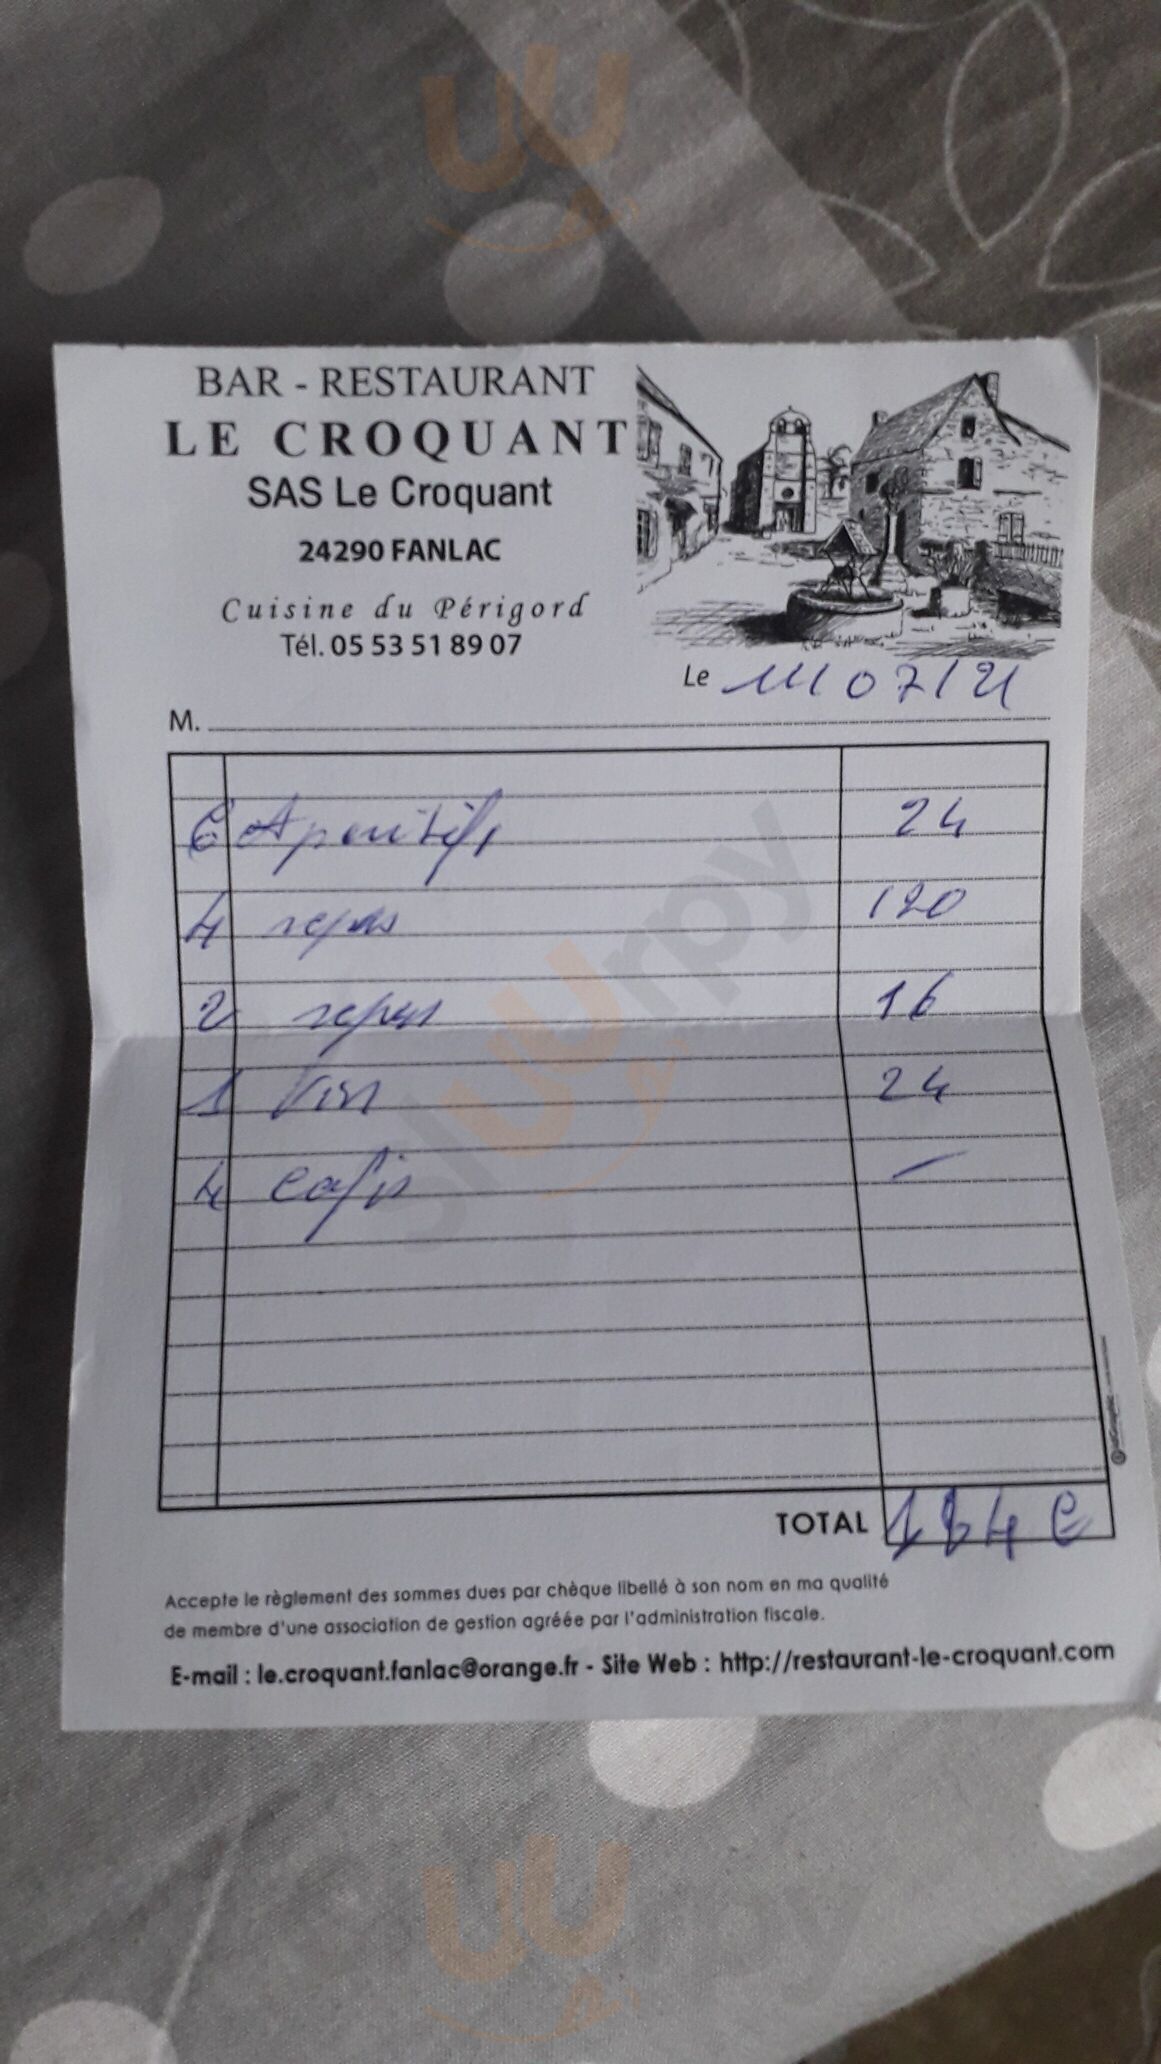 BAR - RESTAURANT
LE CROQUANT
SAS Le Croquant
24290 FANLAC
Cuisine du Périgord
Tél. 05 53 51 89 07
Le 11/07/21
M.
6 Aperitifs 24
4 repas 120
2 repas 16
1 Vin 24
4 cafés —
TOTAL 184 €
Accepte le règlement des sommes dues par chèque libellé à son nom en ma qualité
de membre d'une association de gestion agréée par l'administration fiscale.
E-mail : le.croquant.fanlac@orange.fr - Site Web : http://restaurant-le-croquant.com
sluurpy